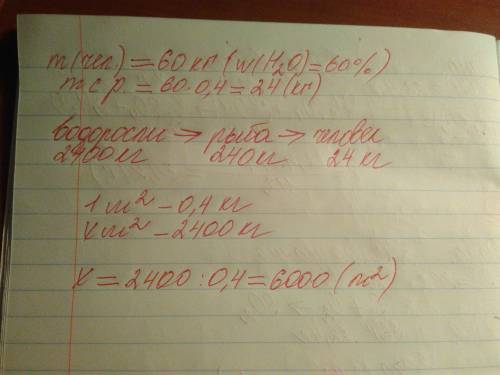 m(чел.) = 60 кг (w(H₂O) = 60%)
m с.р. = 60·0,4 = 24 (кг)
водоросли → рыба → человек
2400 кг 240 кг 24 кг
1 м² – 0,4 кг
х м² – 2400 кг
х = 2400 : 0,4 = 6000 (м²)